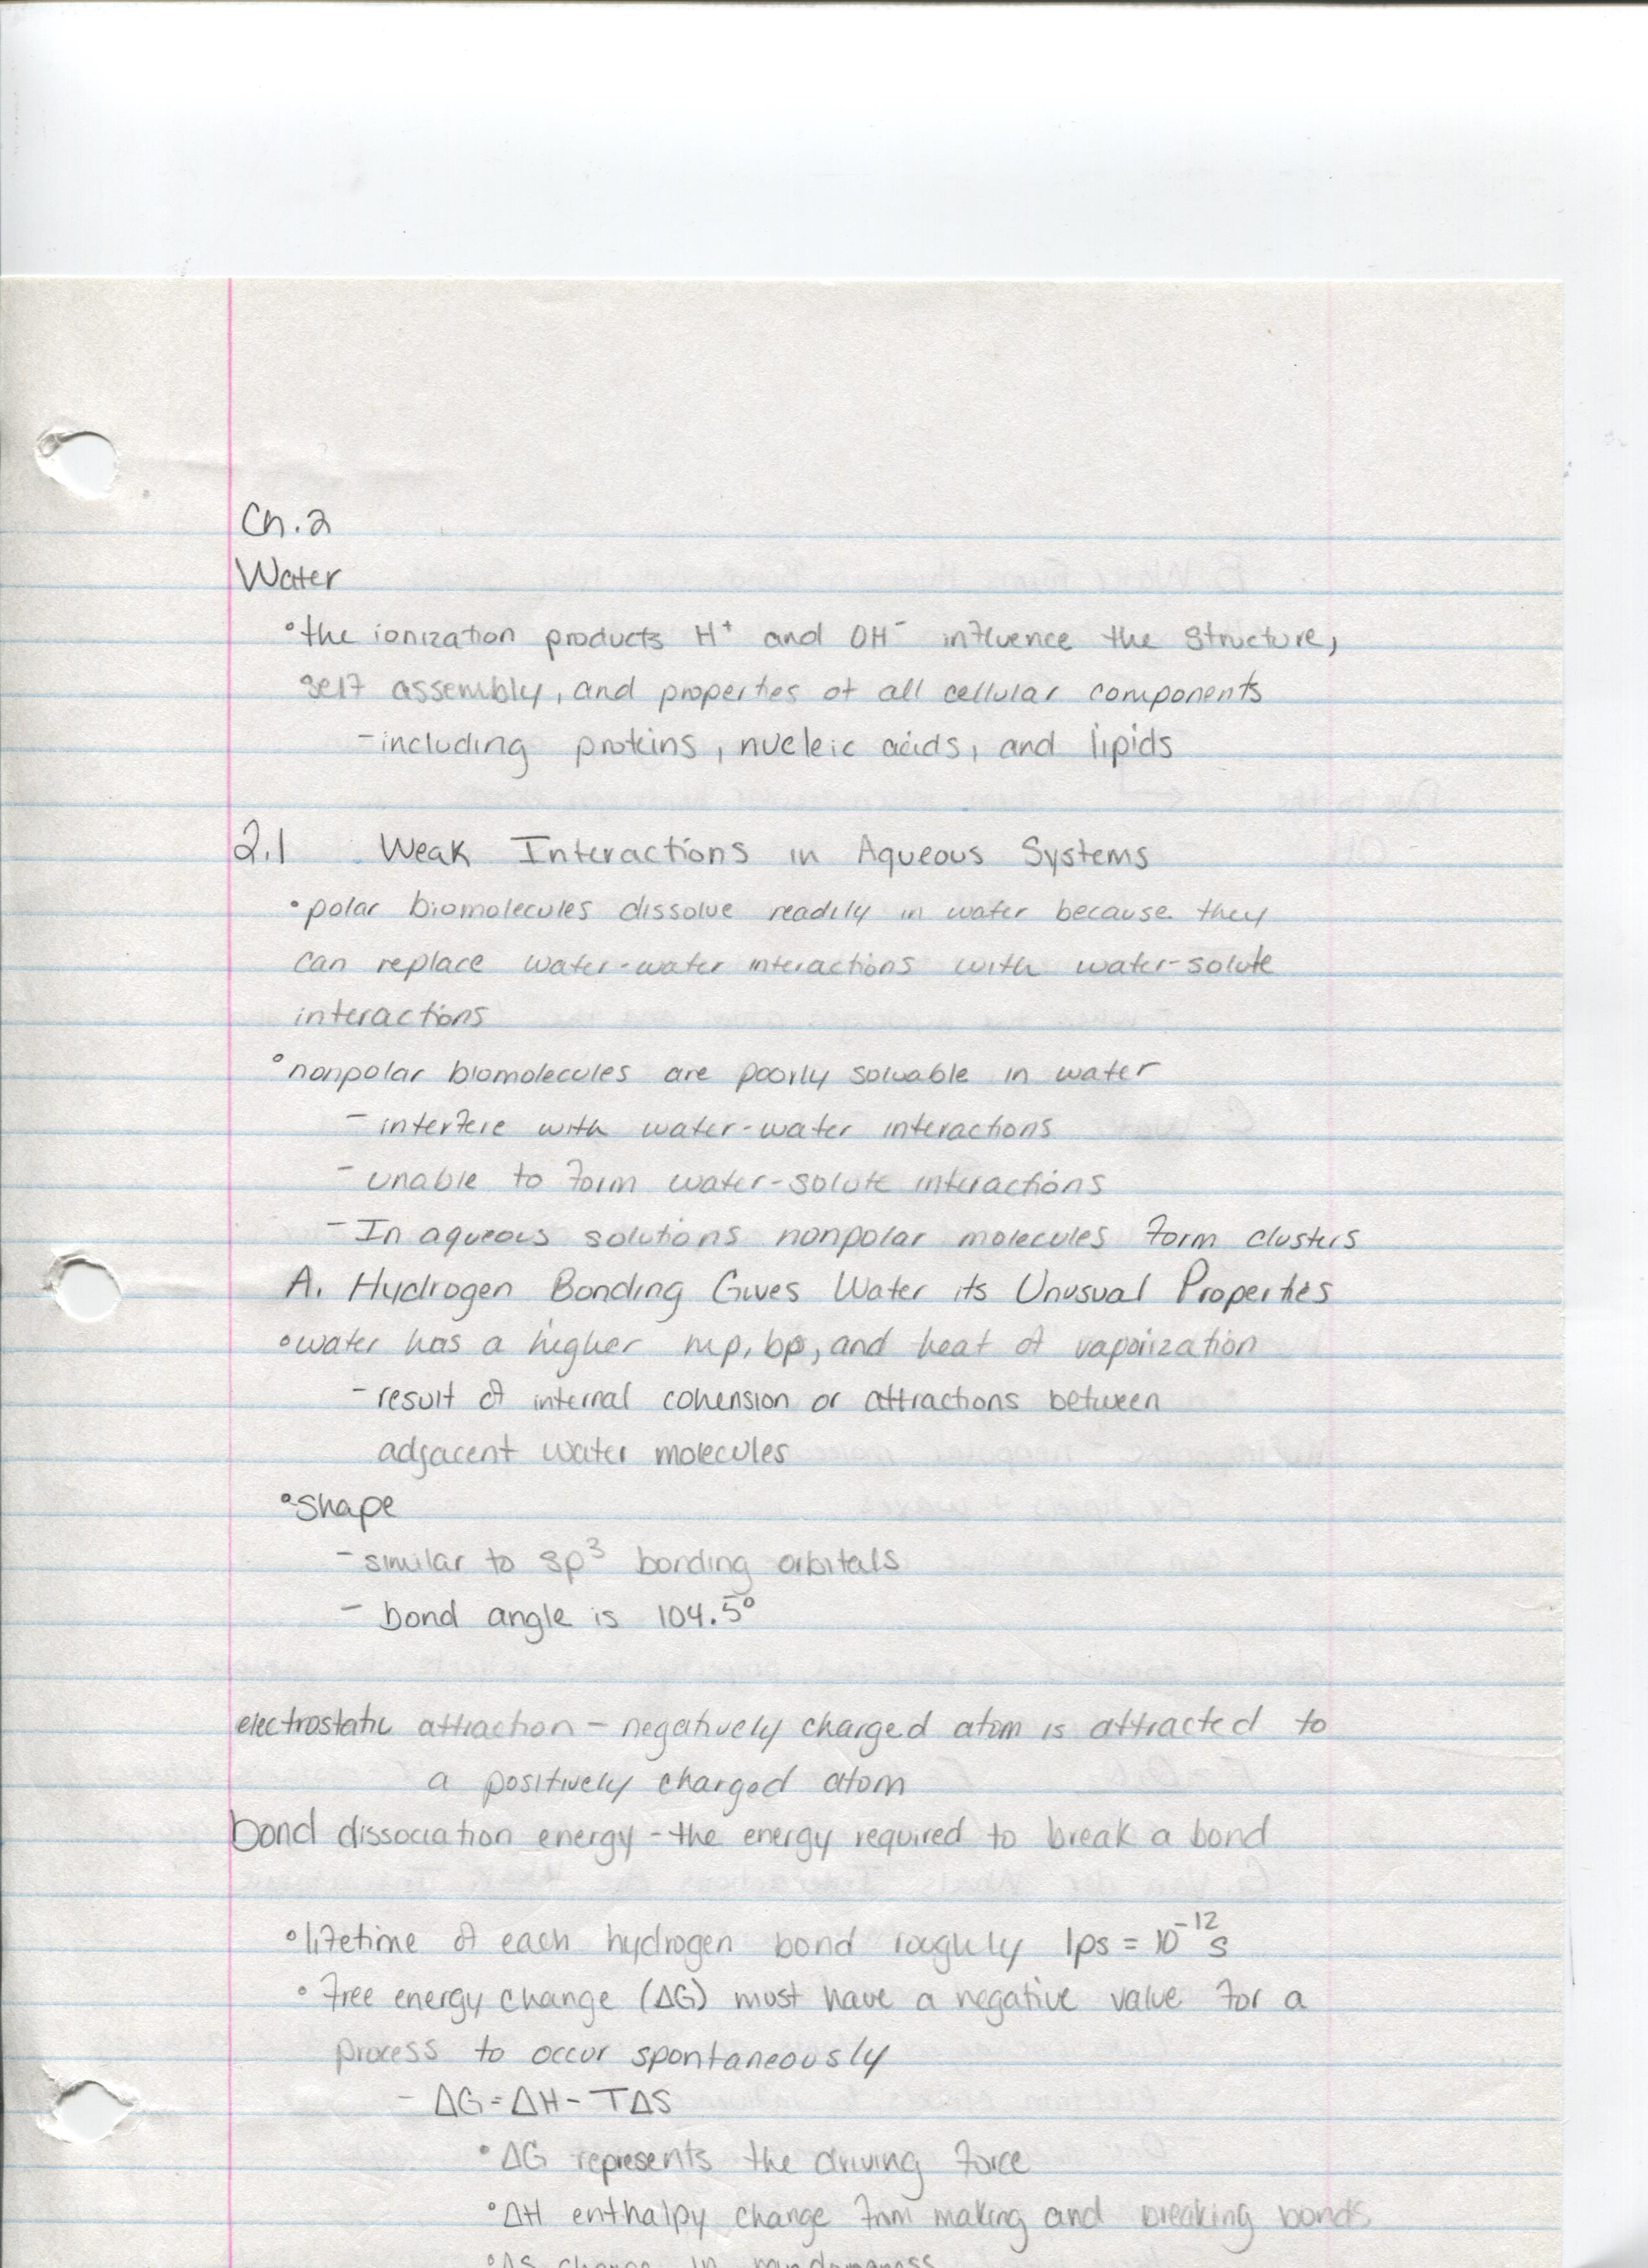 Ch. 2
Water
• the ionization products H⁺ and OH⁻ influence the structure,
self assembly, and properties of all cellular components
- including proteins, nucleic acids, and lipids
2.1 Weak Interactions in Aqueous Systems
• polar biomolecules dissolve readily in water because they
can replace water-water interactions with water-solute
interactions
• nonpolar biomolecules are poorly soluable in water
- interfere with water-water interactions
- unable to form water-solute interactions
- In aqueous solutions nonpolar molecules form clusters
A. Hydrogen Bonding Gives Water its Unusual Properties
• water has a higher mp, bp, and heat of vaporization
- result of internal cohension or attractions between
adjacent water molecules
• shape
- similar to sp³ bonding orbitals
- bond angle is 104.5°
electrostatic attraction - negatively charged atom is attracted to
a positively charged atom
bond dissociation energy - the energy required to break a bond
• lifetime of each hydrogen bond roughly 1ps = 10⁻¹² s
• free energy change (ΔG) must have a negative value for a
process to occur spontaneously
- ΔG = ΔH - TΔS
• ΔG represents the driving force
• ΔH enthalpy change from making and breaking bonds
• ΔS change in randomness